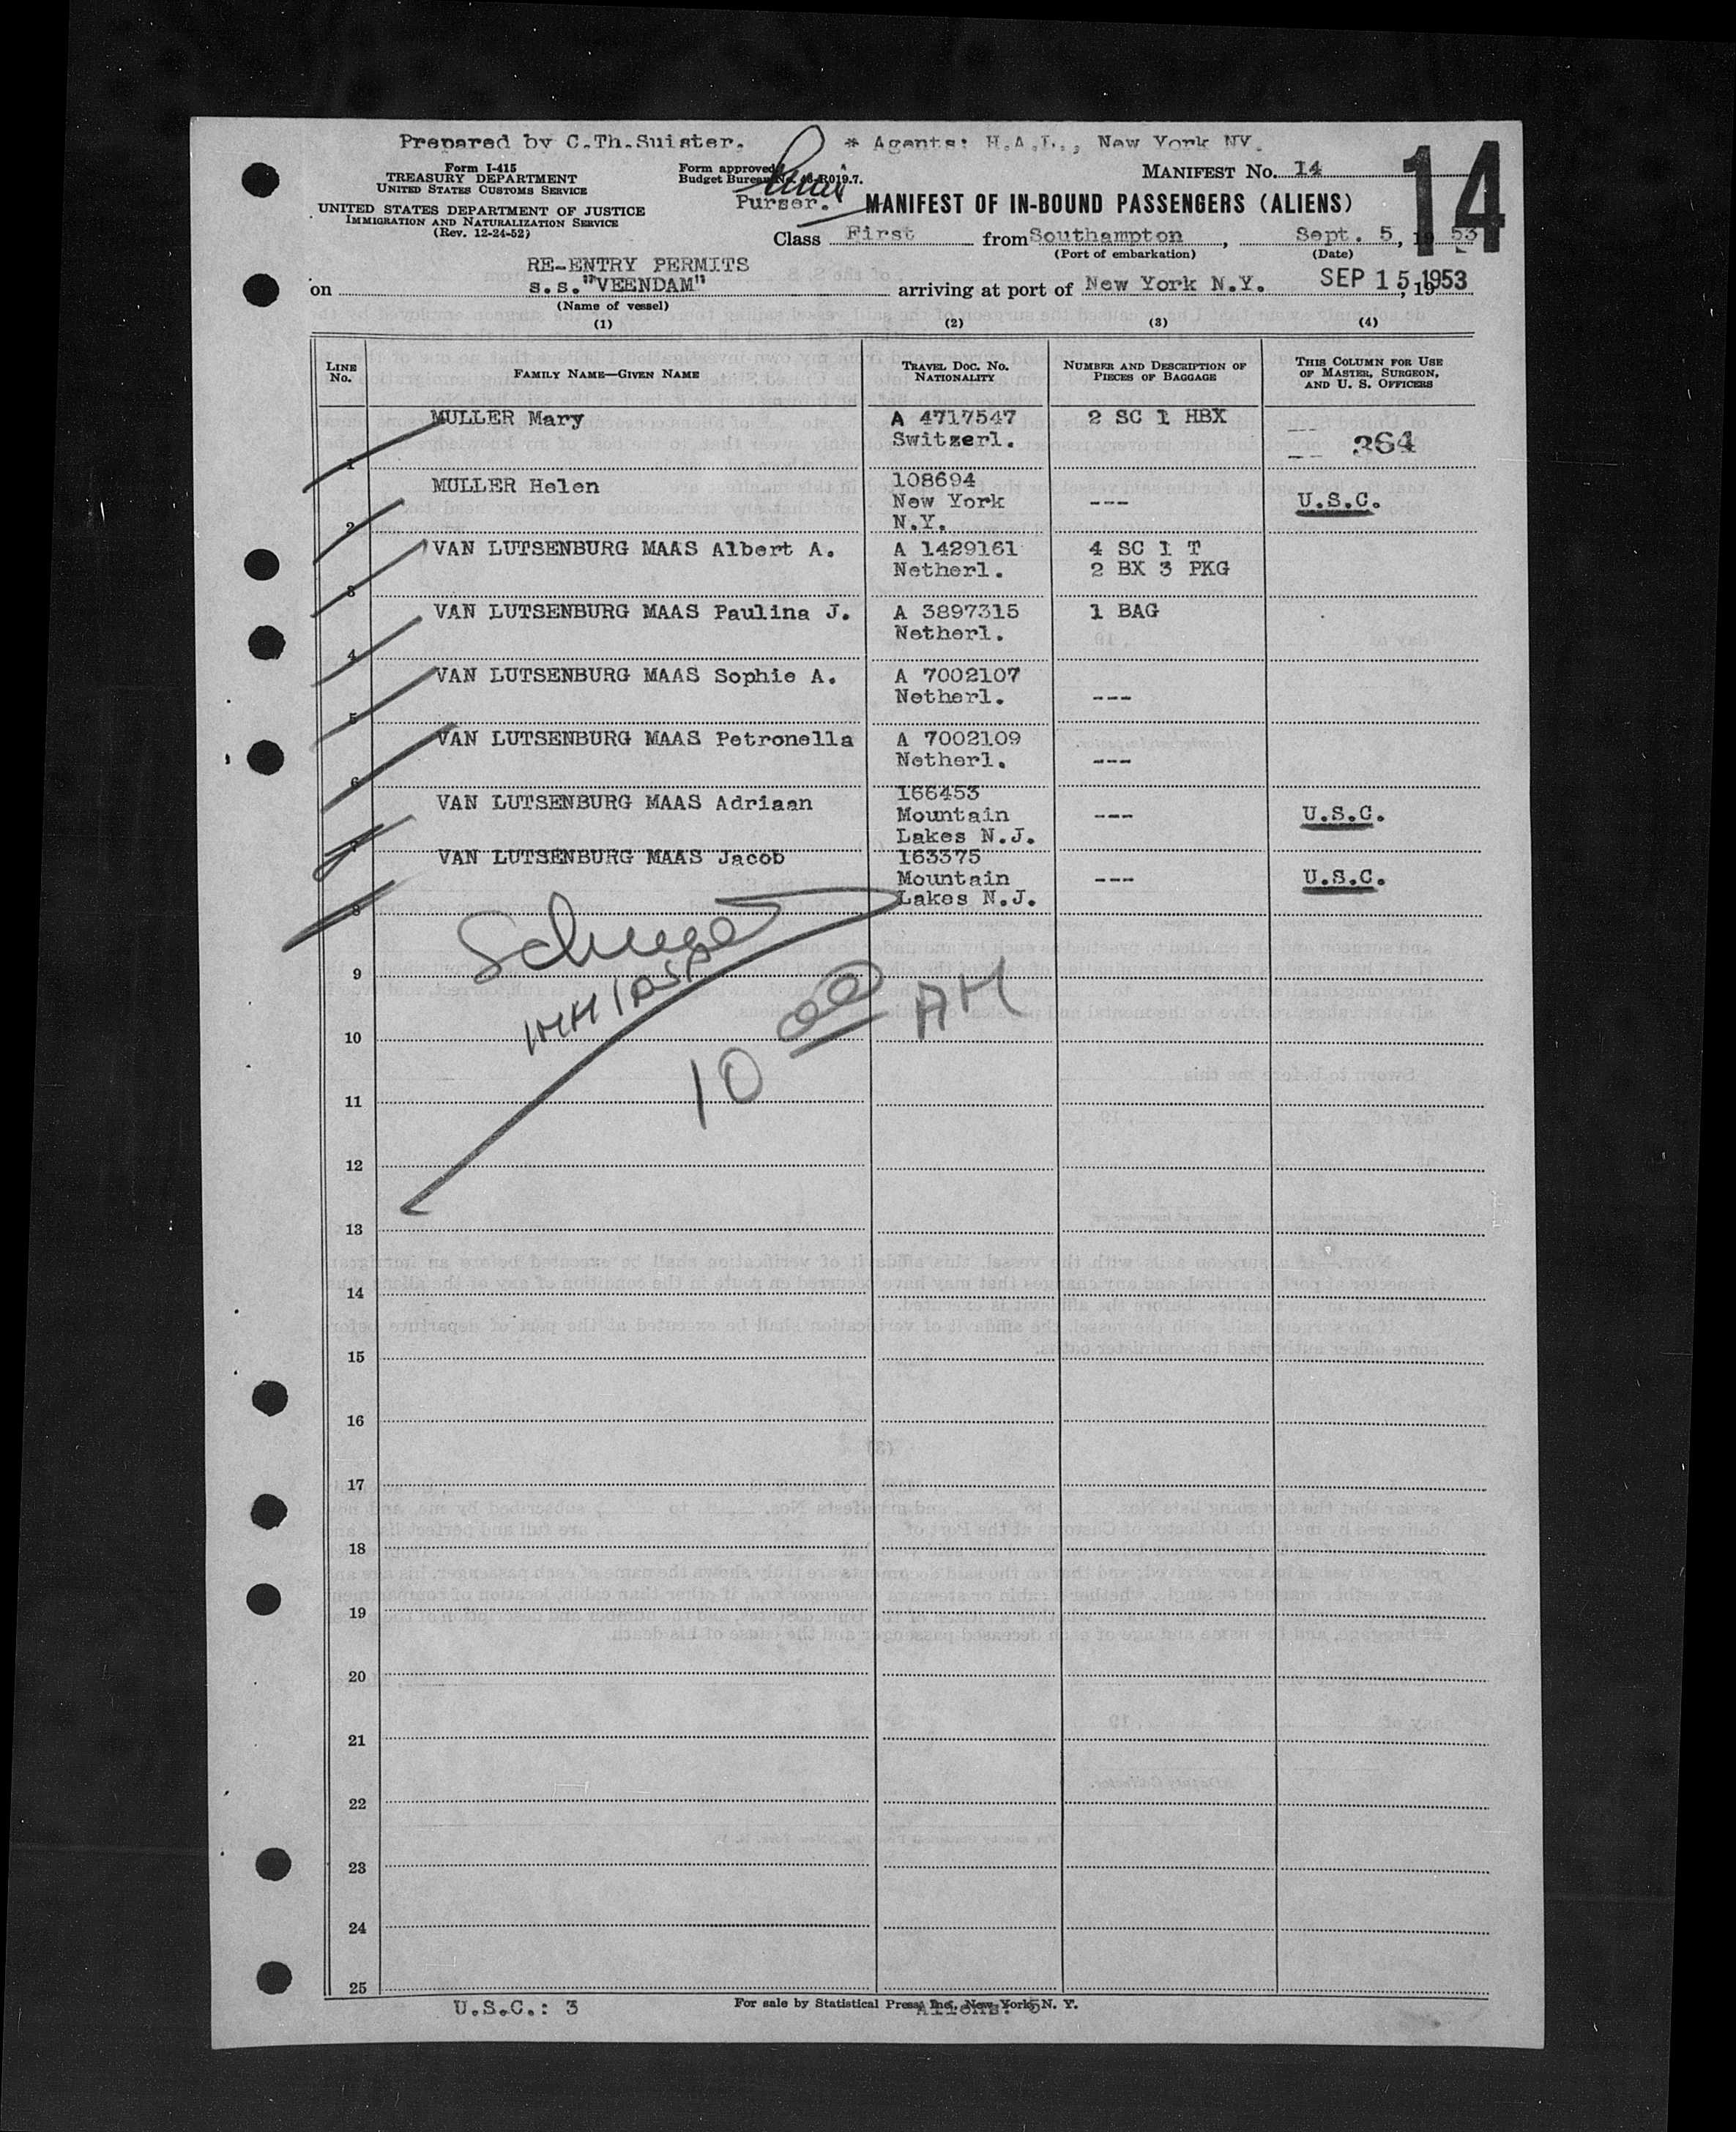 Prepared by C.Th.Suister. * Agents: H.A.L., New York NY.
Form I-415
TREASURY DEPARTMENT
UNITED STATES CUSTOMS SERVICE
UNITED STATES DEPARTMENT OF JUSTICE
IMMIGRATION AND NATURALIZATION SERVICE
(Rev. 12-24-52)
Form approved
Budget Bureau No. 43-R019.7.
Purser.
MANIFEST No. 14
14
MANIFEST OF IN-BOUND PASSENGERS (ALIENS)
Class First from Southampton, Sept. 5, 1953
(Port of embarkation) (Date)
RE-ENTRY PERMITS
on s.s."VEENDAM" arriving at port of New York N.Y. SEP 15 1953, 19
(Name of vessel)
(1) (2) (3) (4)
LINE No. FAMILY NAME—GIVEN NAME TRAVEL DOC. No. NATIONALITY NUMBER AND DESCRIPTION OF PIECES OF BAGGAGE THIS COLUMN FOR USE OF MASTER, SURGEON, AND U. S. OFFICERS
MULLER Mary A 4717547 2 SC 1 HBX
1 Switzerl. 364
MULLER Helen 108694
New York --- U.S.C.
2 N.Y.
VAN LUTSENBURG MAAS Albert A. A 1429161 4 SC 1 T
3 Netherl. 2 BX 3 PKG
VAN LUTSENBURG MAAS Paulina J. A 3897315 1 BAG
4 Netherl.
VAN LUTSENBURG MAAS Sophie A. A 7002107
5 Netherl. ---
VAN LUTSENBURG MAAS Petronella A 7002109
6 Netherl. ---
VAN LUTSENBURG MAAS Adriaan 166453
Mountain --- U.S.C.
7 Lakes N.J.
VAN LUTSENBURG MAAS Jacob 163375
Mountain --- U.S.C.
8 Lakes N.J.
9
IMM INSP
10 00 AM
10
11
12
13
14
15
16
17
18
19
20
21
22
23
24
25
U.S.C.: 3 Aliens: 5
For sale by Statistical Press, Inc., New York, N. Y.